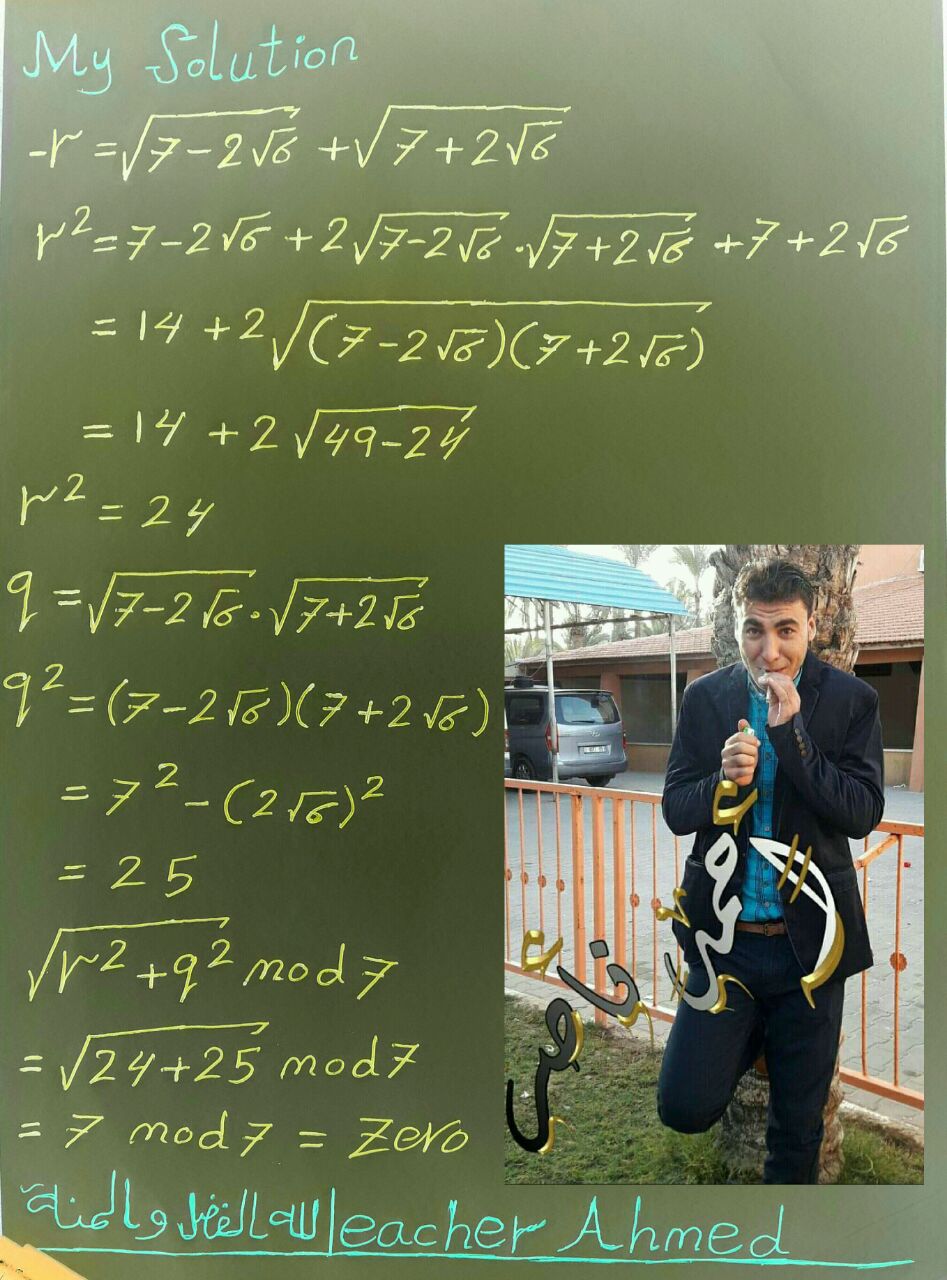 My Solution
-r = √(7-2√6) + √(7+2√6)
r² = 7-2√6 + 2√(7-2√6) · √(7+2√6) + 7 + 2√6
= 14 + 2√((7-2√6)(7+2√6))
= 14 + 2√(49-24)
r² = 24
q = √(7-2√6) · √(7+2√6)
q² = (7-2√6)(7+2√6)
= 7² - (2√6)²
= 25
√(r²+q²) mod 7
= √(24+25) mod 7
= 7 mod 7 = Zero
لله الفضل والمنة Teacher Ahmed